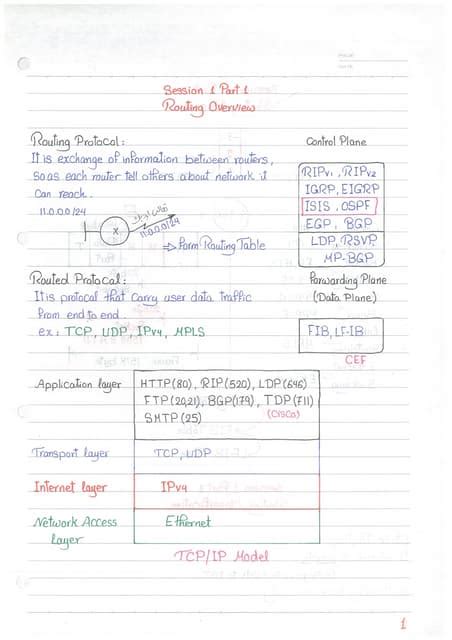 Session 1 Part 1
Routing Overview
Routing Protocal:
It is exchange of information between routers,
So as each router tell others about network it
Can reach.
11.0.0.0/24
X
11.0.0.0/24
⇒ Form Routing Table
Control Plane
RIPv1, RIPv2
IGRP, EIGRP
ISIS, OSPF
EGP, BGP
LDP, RSVP
MP-BGP
Routed Protocal:
It is protocal that carry user data traffic
from end to end.
ex: TCP, UDP, IPv4, MPLS
Forwarding Plane
(Data Plane)
FIB, LFIB
CEF
Application layer
HTTP(80), RIP(520), LDP(646)
FTP(20,21), BGP(179), TDP(711)
SMTP(25) (Cisco)
Transport layer TCP, UDP
Internet layer IPv4
Network Access Ethernet
layer
TCP/IP Model
1